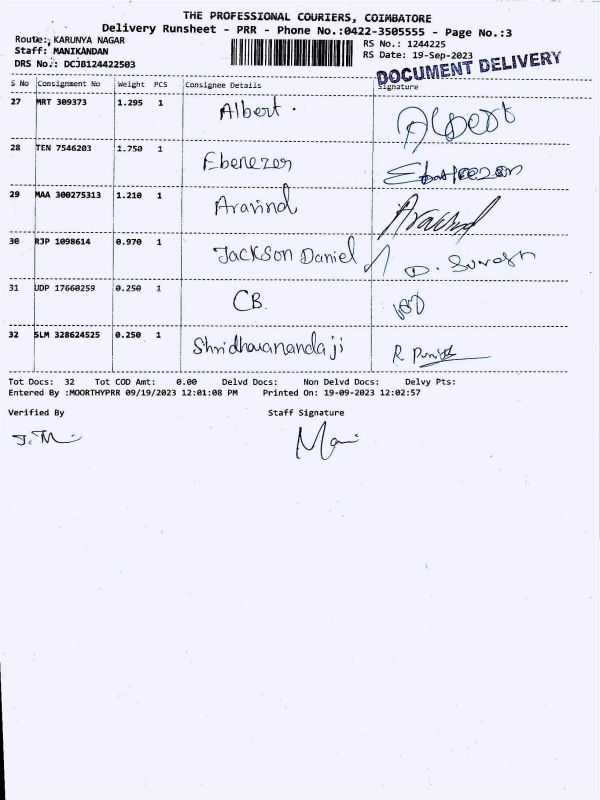 THE PROFESSIONAL COURIERS, COIMBATORE
Delivery Runsheet - PRR - Phone No.:0422-3505555 - Page No.:3
Route:, KARUNYA NAGAR
RS No.: 1244225
Staff: MANIKANDAN
RS Date: 19-Sep-2023
DRS No.: DCJB124422503
DOCUMENT DELIVERY
S No Consignment No Weight PCS Consignee Details Signature
27 MRT 309373 1.295 1 Albert. Albert
28 TEN 7546203 1.750 1 Ebenezer
29 MAA 300275313 1.210 1 Aravind Aravind
30 RJP 1098614 0.970 1 Jackson Daniel D. Suresh
31 UDP 17660259 0.250 1 CB.
32 SLM 328624525 0.250 1 Shridhavanandaji
Tot Docs: 32 Tot COD Amt: 0.00 Delvd Docs: Non Delvd Docs: Delvy Pts:
Entered By :MOORTHYPRR 09/19/2023 12:01:08 PM Printed On: 19-09-2023 12:02:57
Verified By Staff Signature